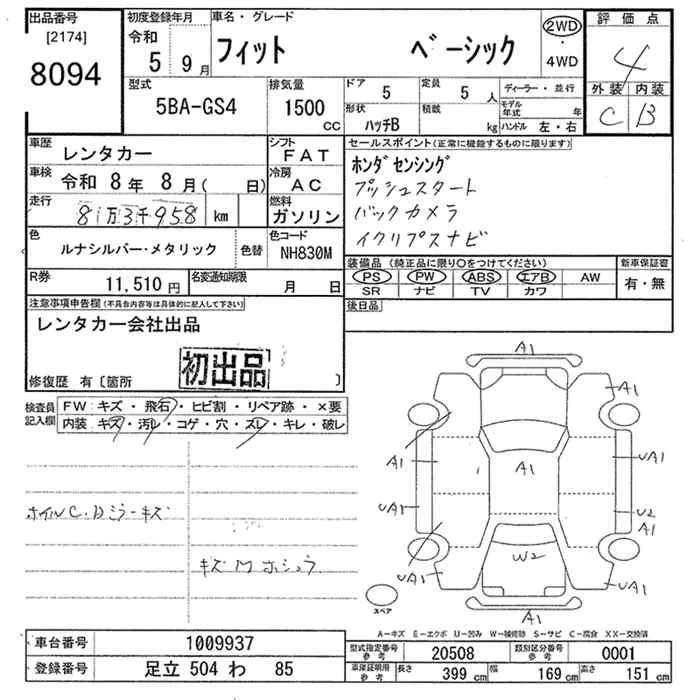 出品番号
[2174]
8094
初度登録年月
令和
5 9月
車名・グレード
フィット ベーシック
2WD
・
4WD
評価点
4
外装 内装
C B
型式
5BA-GS4
排気量
1500
CC
ドア
5
定員
5 人
形状
ハッチB
積載
kg
ディーラー・並行
モデル年式 年
ハンドル 左・右
車歴
レンタカー
シフト
FAT
車検
令和 8年 8月( 日)
冷房
AC
走行
8万3千958 km
燃料
ガソリン
色
ルナシルバー・メタリック
色替
色コード
NH830M
R券
11,510円
名変通知期限
月 日
セールスポイント(正常に機能するものに限ります)
ホンダセンシング
プッシュスタート
バックカメラ
イクリプスナビ
装備品(純正品に限り○をつけてください)
PS PW ABS エアB AW
SR ナビ TV カワ
新車保証書
有・無
後日品
注意事項申告欄(不具合内容等は具体的に記入して下さい)
レンタカー会社出品
初出品
修復歴 有〔箇所 〕
検査員記入欄
FW:キズ・飛石・ヒビ割・リペア跡・×要
内装:キズ・汚レ・コゲ・穴・ズレ・キレ・破レ
ホイルC.Bミラーキズ
キズM ホシュラ
A1
A1
A1
A1
UA1
UA1
U2
A1
W2
UA1
UA1
A1
スペア
A-キズ E-エクボ U-凹み W-補修跡 S-サビ C-腐食 XX-交換済
車台番号
1009937
登録番号
足立 504 わ 85
型式指定番号
参考
20508
類別区分番号
参考
0001
車庫証明用
参考
長さ
399 cm
幅
169 cm
高さ
151 cm